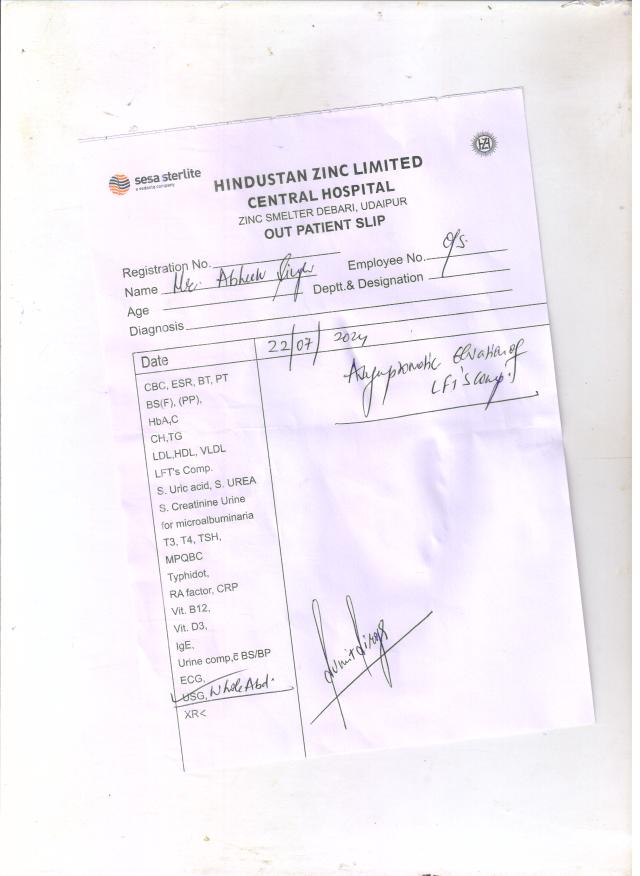 sesa sterlite
a vedanta company
HZL
HINDUSTAN ZINC LIMITED
CENTRAL HOSPITAL
ZINC SMELTER DEBARI, UDAIPUR
OUT PATIENT SLIP
Registration No.
Employee No. O/S.
Name Mr. Singh
Deptt.& Designation
Age
Diagnosis
Date 22/07/2024
Asymptomatic Elevation of
LFT's comp.
CBC, ESR, BT, PT
BS(F), (PP),
HbA,C
CH,TG
LDL,HDL, VLDL
LFT's Comp.
S. Uric acid, S. UREA
S. Creatinine Urine
for microalbuminaria
T3, T4, TSH,
MPQBC
Typhidot,
RA factor, CRP
Vit. B12,
Vit. D3,
IgE,
Urine comp,c̄ BS/BP
ECG,
USG, Whole Abd.
XR<